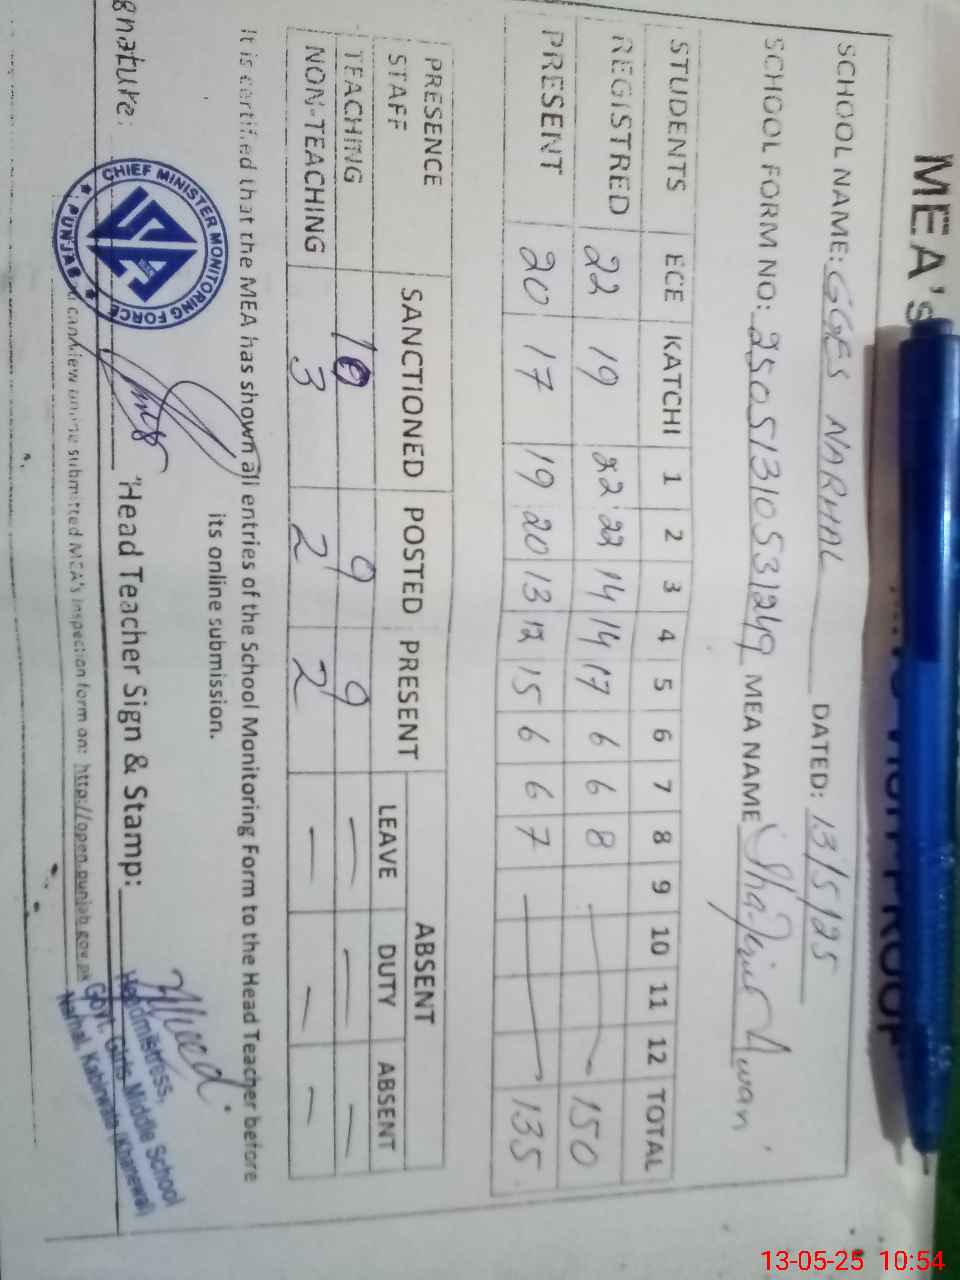 MEA'S
SCHOOL NAME: GGES NARHAL DATED: 13/5/25
SCHOOL FORM NO: 25051310531249 MEA NAME
STUDENTS ECE KATCHI 1 2 3 4 5 6 7 8 9 10 11 12 TOTAL
REGISTRED 22 19 22 22 14 14 17 6 6 8 150
PRESENT 20 17 19 20 13 12 15 6 6 7 135
PRESENCE SANCTIONED POSTED PRESENT ABSENT
STAFF LEAVE DUTY ABSENT
TEACHING 10 9 9 — — —
NON-TEACHING 3 2 2 — — —
It is certified that the MEA has shown all entries of the School Monitoring Form to the Head Teacher before
its online submission.
gnature: Head Teacher Sign & Stamp:
CHIEF MINISTER MONITORING FORCE
PUNJAB
Headmistress,
Govt. Girls Middle School
Narhal, Kabirwala (Khanewal)
can view online submitted MEA's inspection form on: http://open.punjab.gov.pk
13-05-25 10:54